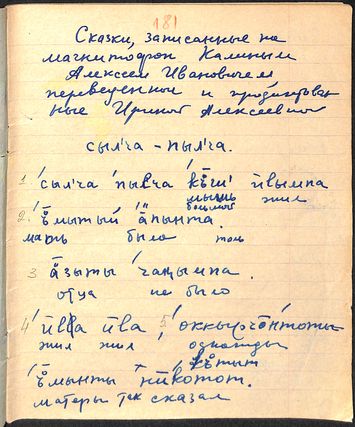 181
Сказки, записанные на
магнитофон Калиным
Алексеем Ивановичем
переведенные и продиктован
ные Ириной Алексеевной
сыльча - пыльча.
1. сыльча пыльча кэ̄ши ӣвымпа
мышь
большой жил
2. э̄мытый а̄пынта.
мать было толь
3 а̄зыты чаңымпа.
отца не было
4 ӣва ӣва, 5. оккыр чо̄нтоты
жил жил однажды
кэтыт
э̄мынты нӣкотот.
матери так сказал